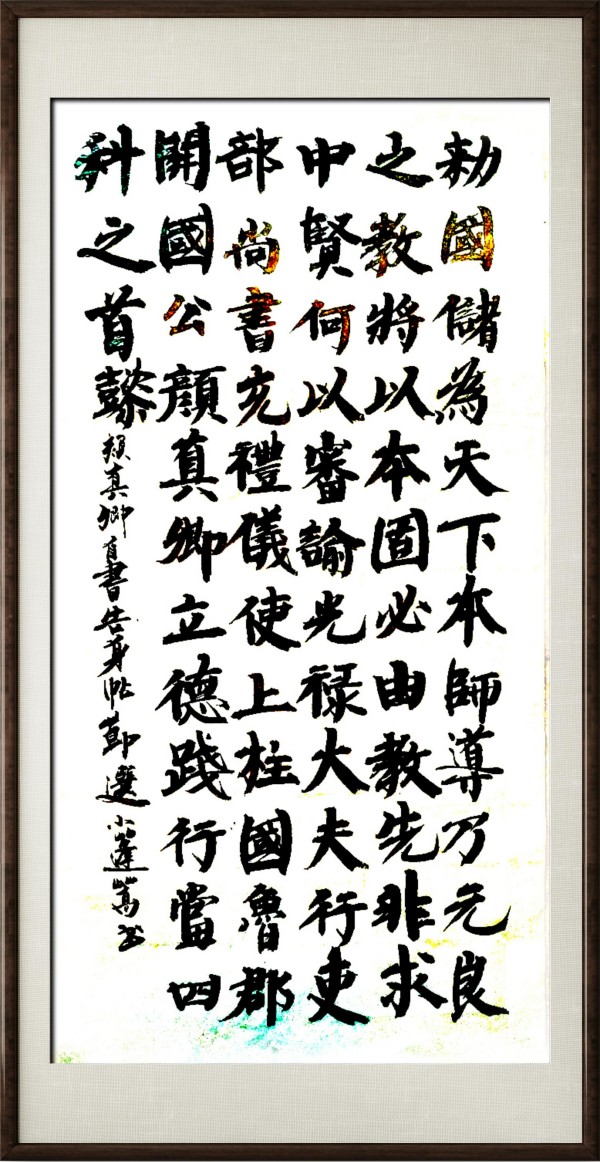 勅國儲為天下本師導乃元良
之教將以本固必由教先非求
中賢何以審諭光禄大夫行吏
部尚書充禮儀使上柱國魯郡
開國公顏真卿立德踐行當四
科之首懿
顏真卿自書告身帖節選小蓬蒿书